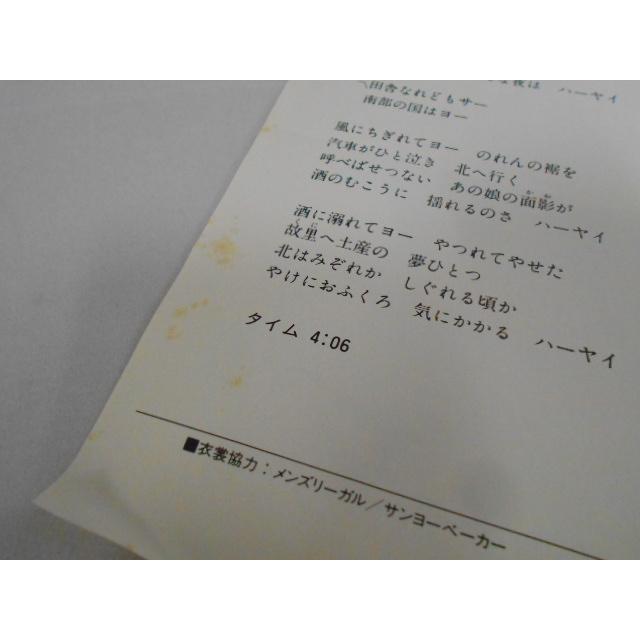 夜は　ハーヤイ
〽田舎なれどもサー
南部の国はヨー
風にちぎれてヨー　のれんの裾を
汽車がひと泣き　北へ行く
呼べばせつない　あの娘の面影が
酒のむこうに　揺れるのさ　ハーヤイ
酒に溺れてヨー　やつれてやせた
故里へ土産の　夢ひとつ
北はみぞれか　しぐれる頃か
やけにおふくろ　気にかかる　ハーヤイ
タイム 4:06
■衣裳協力：メンズリーガル／サンヨーベーカー